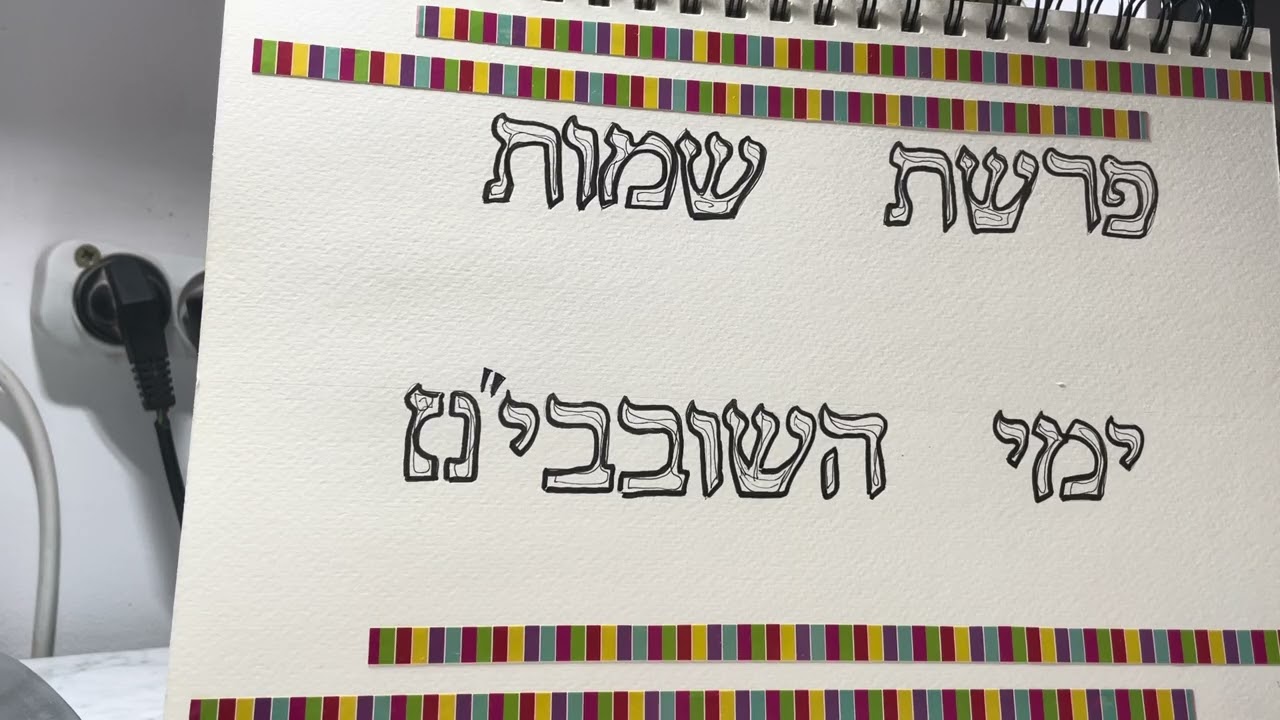 פרשת שמות
ימי השובבי"ם